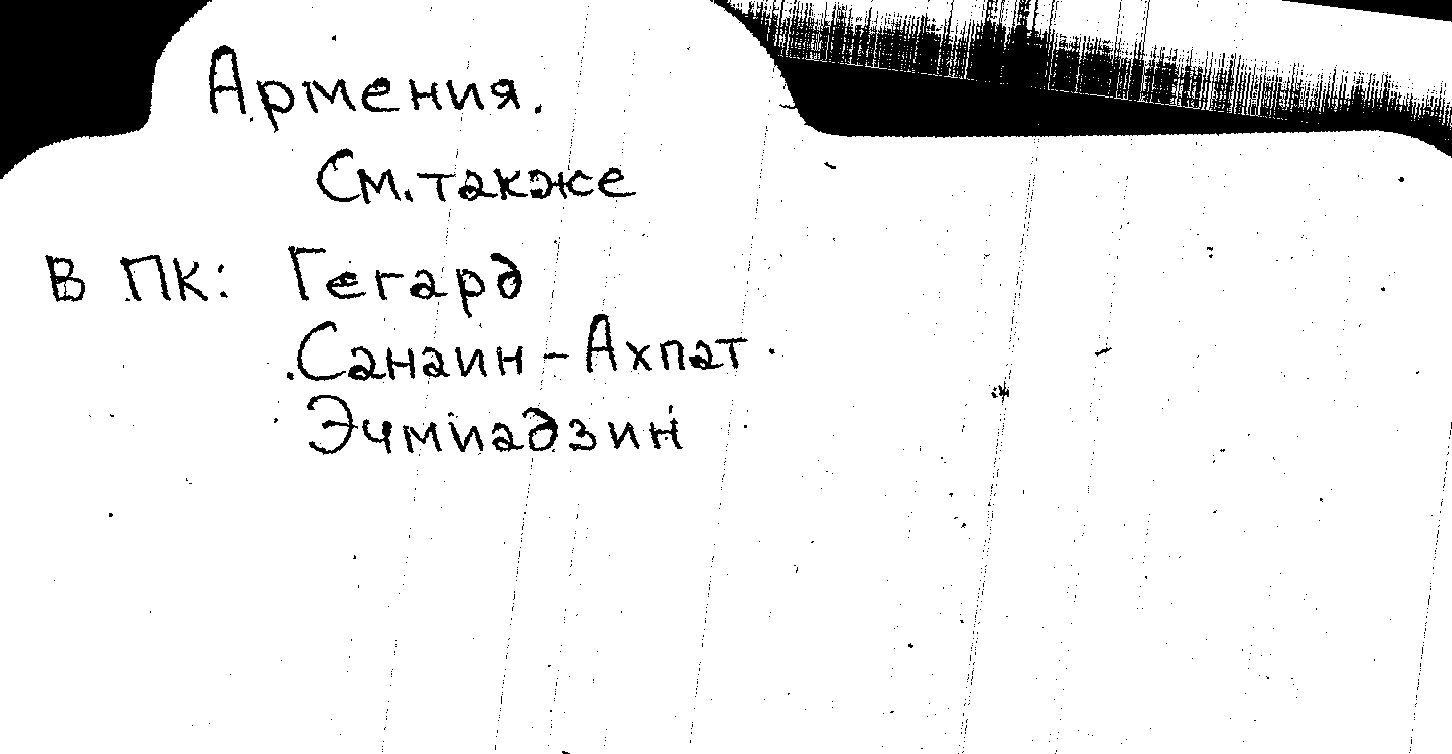 Армения.
См. также
В ПК: Гегард
Санаин - Ахпат
Эчмиадзин